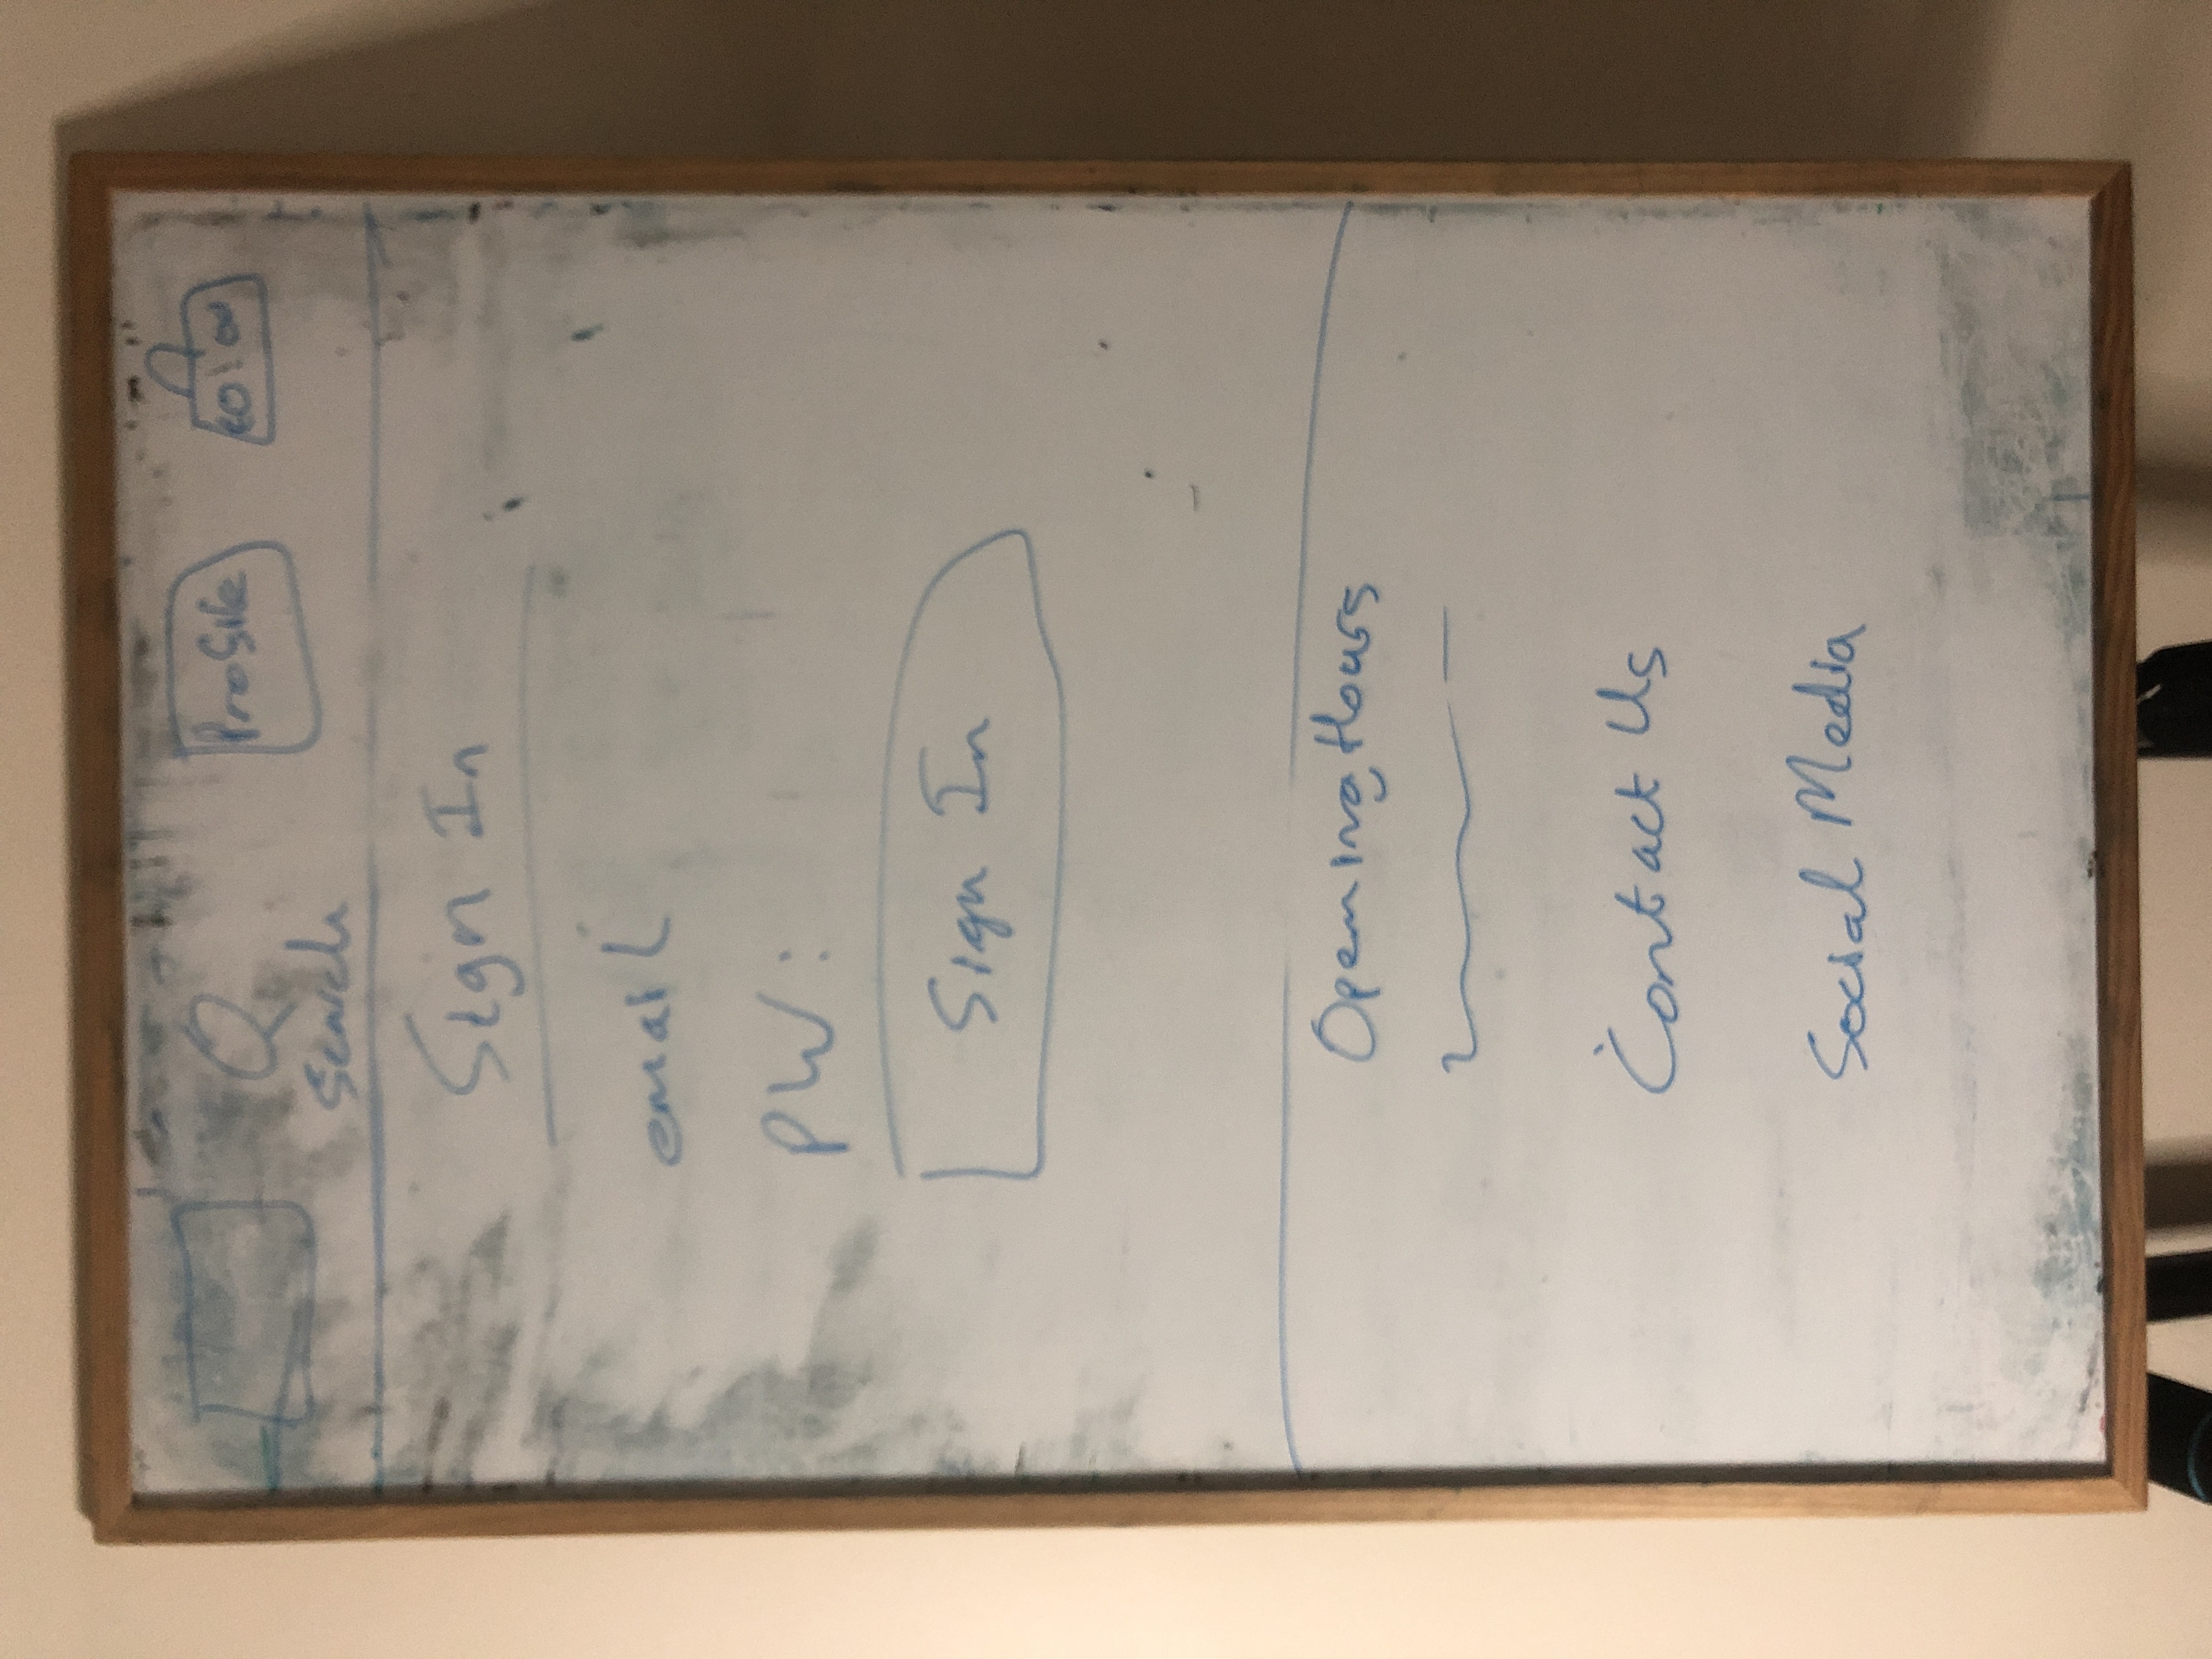 Search
Profile
£0.00
Sign In
email
PW:
Sign In
Opening Hours
Contact Us
Social Media